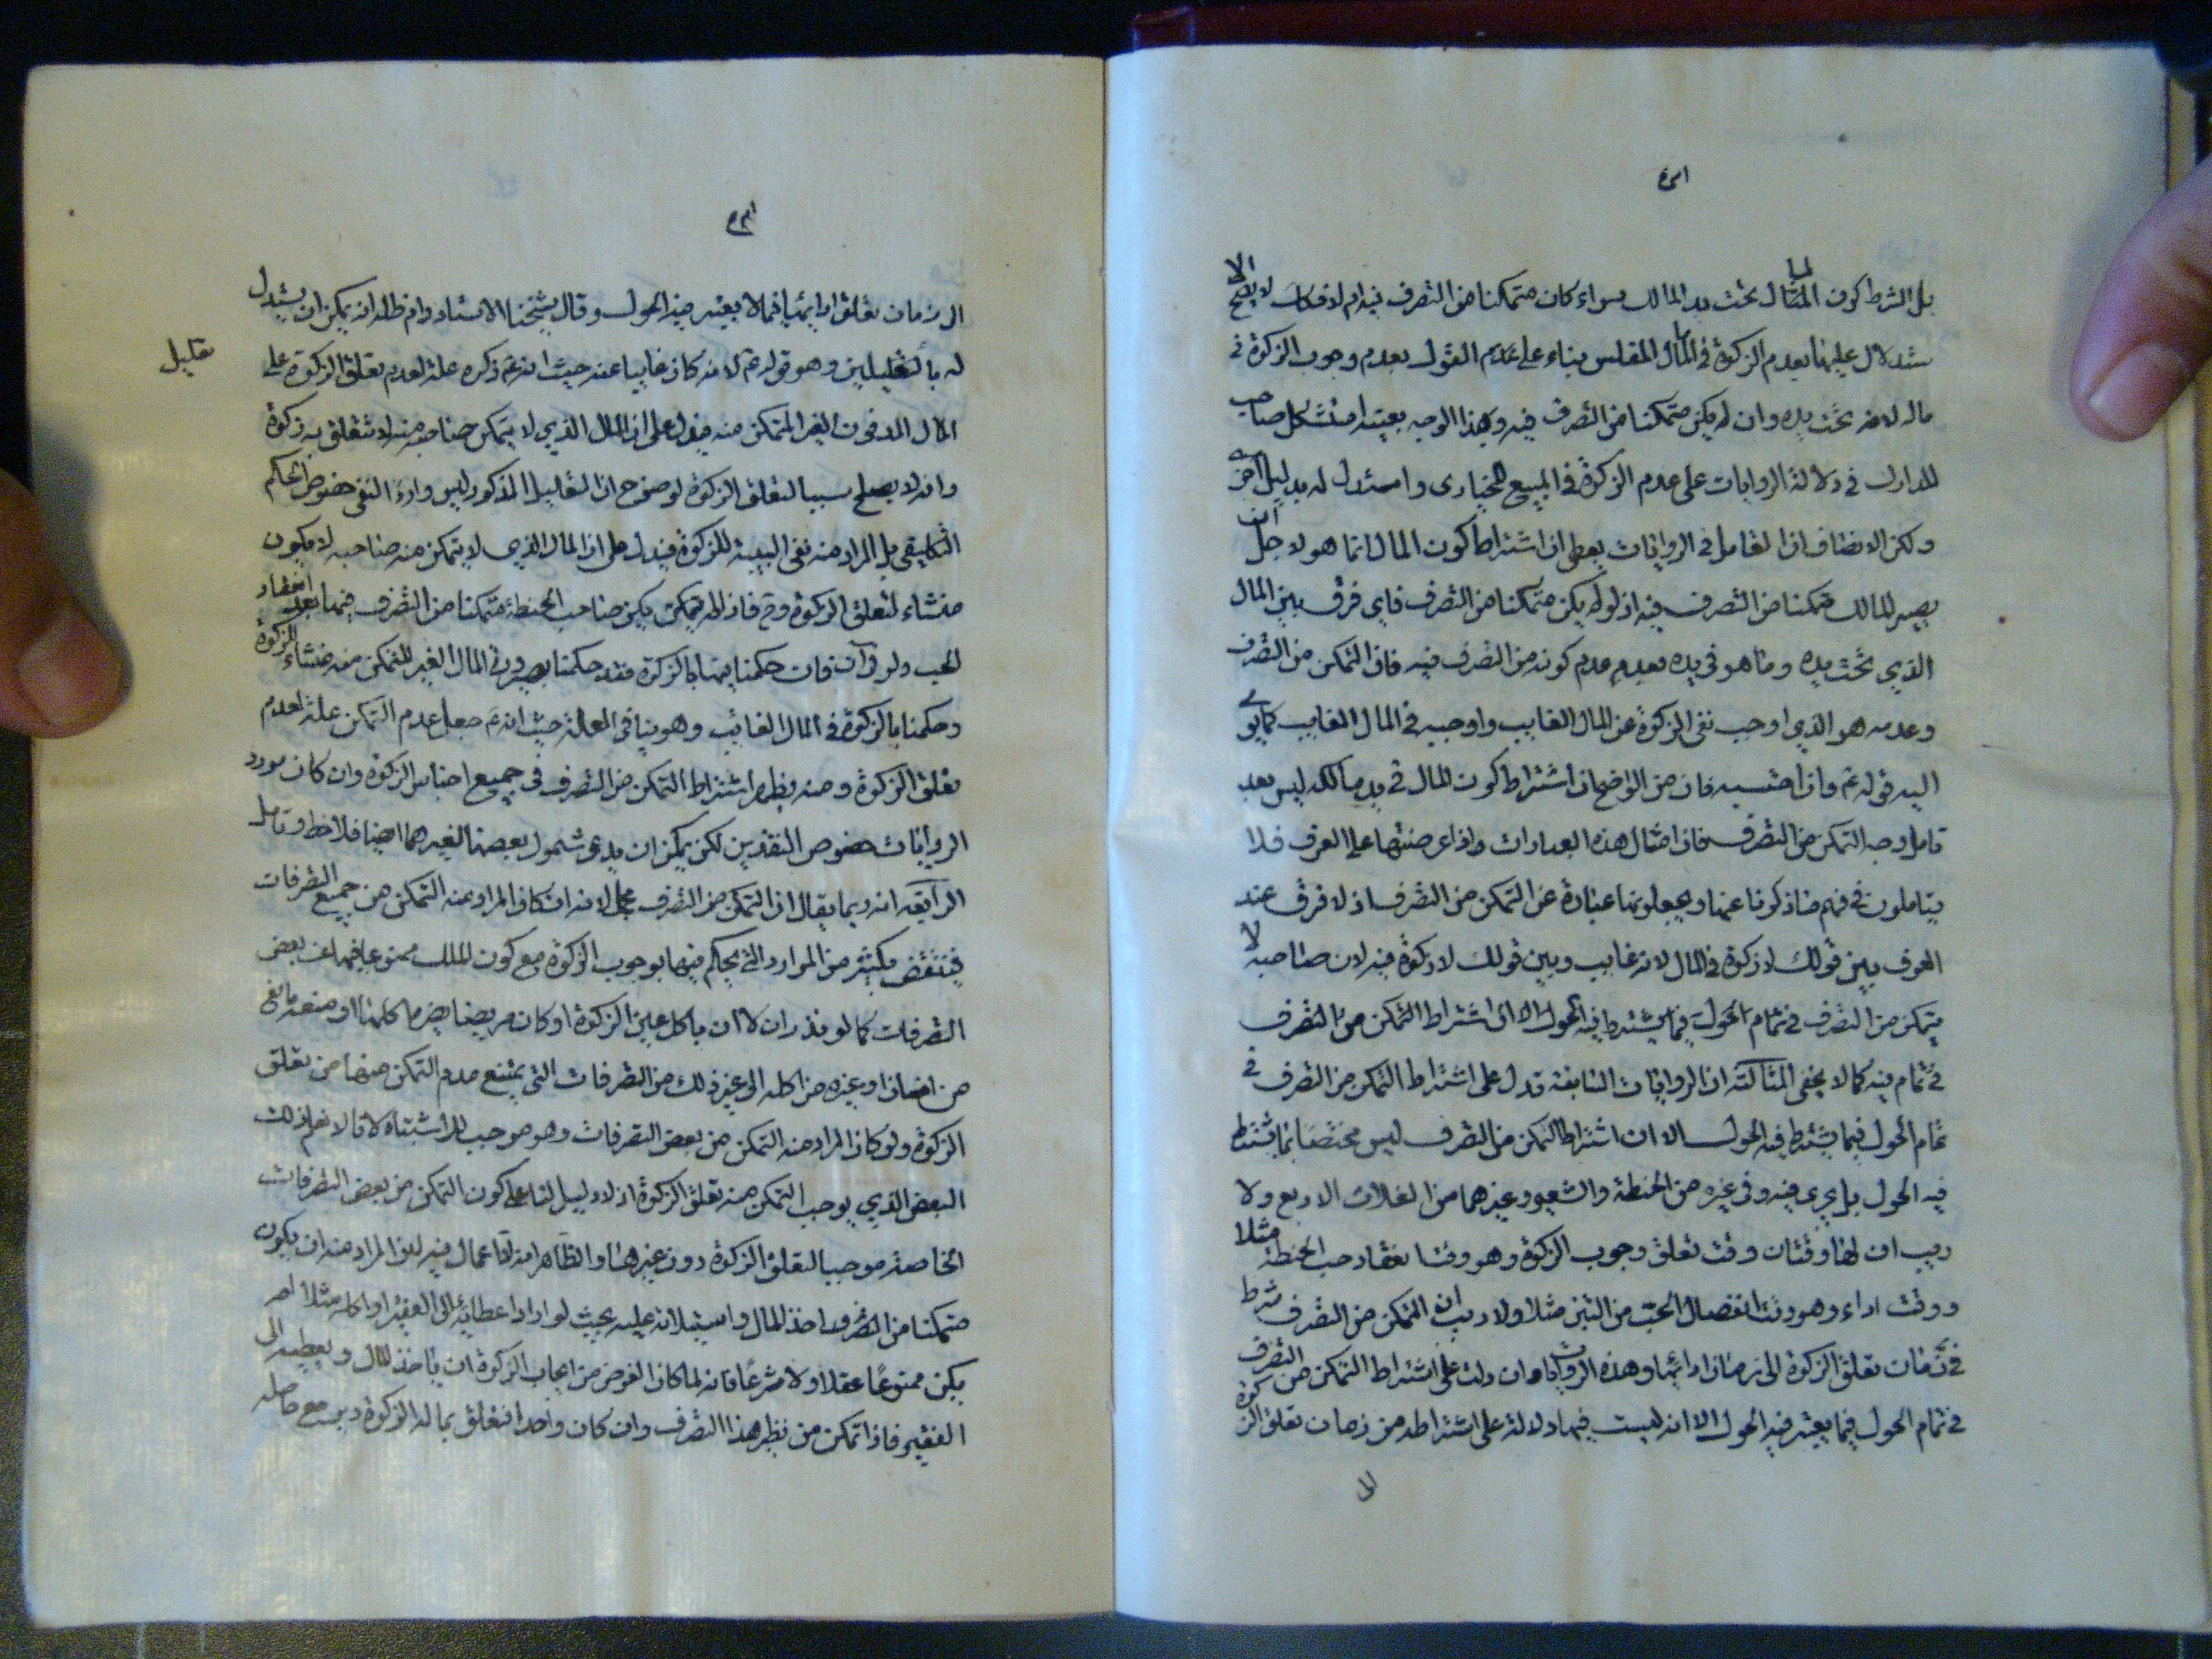 بل الشرط كون المال تحت يد المالك سواء كان متمكنا من التصرف فيه ام لا فكك لا يصح الا
ستدلال عليها بعدم الزكوة في المال المفلس بناء على عدم القول بعدم وجوب الزكوة في
ماله لانه تحت يده وان لم يكن متمكنا من التصرف فيه وبهذا الوجه بعينه استشكل صاحب
المدارك في دلالة الروايات على عدم الزكوة في المبيع الخيارى واستدل له بدليل اخر
ولكن الانصاف ان التامل في الروايات يعطى ان اشتراط كون المال انما هو لاجل ان
يصير المالك متمكنا من التصرف فيه اذ لو لم يكن متمكنا من التصرف فاى فرق بين المال
الذي تحت يده وما هو في يده بعدم كونه من التصرف فيه فان التمكن من التصرف
وعدمه هو الذي اوجب نفى الزكوة عن المال الغايب واوجبه في المال الغايب كما يو
اليه قوله ع وان احتسبه فان من الواضح ان اشتراط كون المال في يد مالكه ليس بعد
تامل وجه التمكن من التصرف فان امثال هذه العبارات واذا عرضتها على العرف فلا
يتاملون في فهم ما ذكرنا عنها ويجعلونها عبارة عن التمكن من التصرف اذ لا فرق عند
العرف بين قولك لا زكوة في المال لانه غايب وبين قولك لا زكوة فيه لان صاحبه لا
يتمكن من التصرف في تمام الحول فيما يشترط فيه الحول الا ان اشتراط التمكن من التصرف
في تمام فيه كما لا يخفى الثالثة ان الروايات السابقة تدل على اشتراط التمكن من التصرف في
تمام الحول فيما يشترط فيه الحول الا ان اشتراط التمكن من التصرف ليس مختصا بما يشترط
فيه الحول بل يجرى فيه وفى غيره من الحنطة والشعير وغيرهما من الغلات الاربع ولا
ريب ان لها وقتان وقت تعلق وجوب الزكوة وهو وقت انعقاد حب الحنطة مثلا
ووقت اداء وهو وقت انفصال الحب من التبن مثلا ولا ريب ان التمكن من التصرف شرط
في زمان تعلق الزكوة الى زمان ادائها وهذه الروايات وان دلت على اشتراط التمكن من التصرف
في تمام الحول فيما يعتبر فيه الحول الا انه ليست فيها دلالة على اشتراطه من زمان تعلق الزكوة
الى زمان تعلق ادائها فيما لا يعتبر فيه الحول وقال شيخنا الاستاد دام ظله انه يمكن ان يستدل
له بالتعليلين وهو قوله ع لانه كان غايبا عنه حيث انه ع ذكره علة لعدم تعلق الزكوة على
تعليل
المال المدفون الغير المتمكن منه فيدل على ان المال الذي لا يتمكن صاحبه منه لا تتعلق به زكوة
وانه لا يصلح سببا لتعلق الزكوة لوضوح ان التعليل المذكور ليس وارد النفى خصوص الحكم
التكليفى بل المراد منه نفى السببية للزكوة فيدل على ان المال الذي لا يتمكن منه صاحبه لا يكون
منشاء لتعلق الزكوة وح فاذا لم يتمكن يكن صاحب الحنطة متمكنا من التصرف فيها بعد انعقاد
الحب ولو في آن فان حكمنا فيها بالزكوة فقد حكمنا بصيرورة المال الغير المتمكن منه منشاء للزكوة
وحكمنا بالزكوة في المال الغائب وهو ينافى العلة حيث انه ع جعل عدم التمكن علة لعدم
تعلق الزكوة ومنه يظهر اشتراط التمكن من التصرف في جميع اجناس الزكوة وان كان مورد
الروايات خصوص النقدين لكن يمكن ان يدعى شمول بعضها لغيرهما ايضا فلاحظ وتامل
الرابعة انه ربما يقال ان التمكن من التصرف مجمل لانه ان كان المراد منه التمكن من جميع التصرفات
فينتقض بكثير من الموارد التي يحكم فيها بوجوب الزكوة مع كون الملك ممنوعا فيها عن بعض
التصرفات كما لو نذر ان لا ان ياكل عين الزكوة او كان مريضا يضره اكلها او منعه مانع
من انسان او غيره من اكله الى غير ذلك من التصرفات التي يمتنع عدم التمكن منها من تعلق
الزكوة ولو كان المراد منه التمكن من بعض التصرفات وهو موجب للاشتباه لانا لا نعلم ذلك
البعض الذي يوجب التمكن منه تعلق الزكوة اذ لا دليل لنا على كون التمكن من بعض التصرفات
الخاصة موجبا لتعلق الزكوة دون غيرها والظاهر انه لا اجمال فيه لان المراد منه ان يكون
متمكنا من التصرف اخذ المال واستيلائه عليه بحيث لو اراد اعطائه الى الفقير او اكله مثلا لم
يكن ممنوعا عقلا ولا شرعا فانه لما كان الغرض من ايجاب الزكوة ان ياخذ المال ويعطيه الى
الفقير فاذا تمكن من نظير هذا التصرف وان كان واحدا فتعلق بماله الزكوة ويرجع حاصله